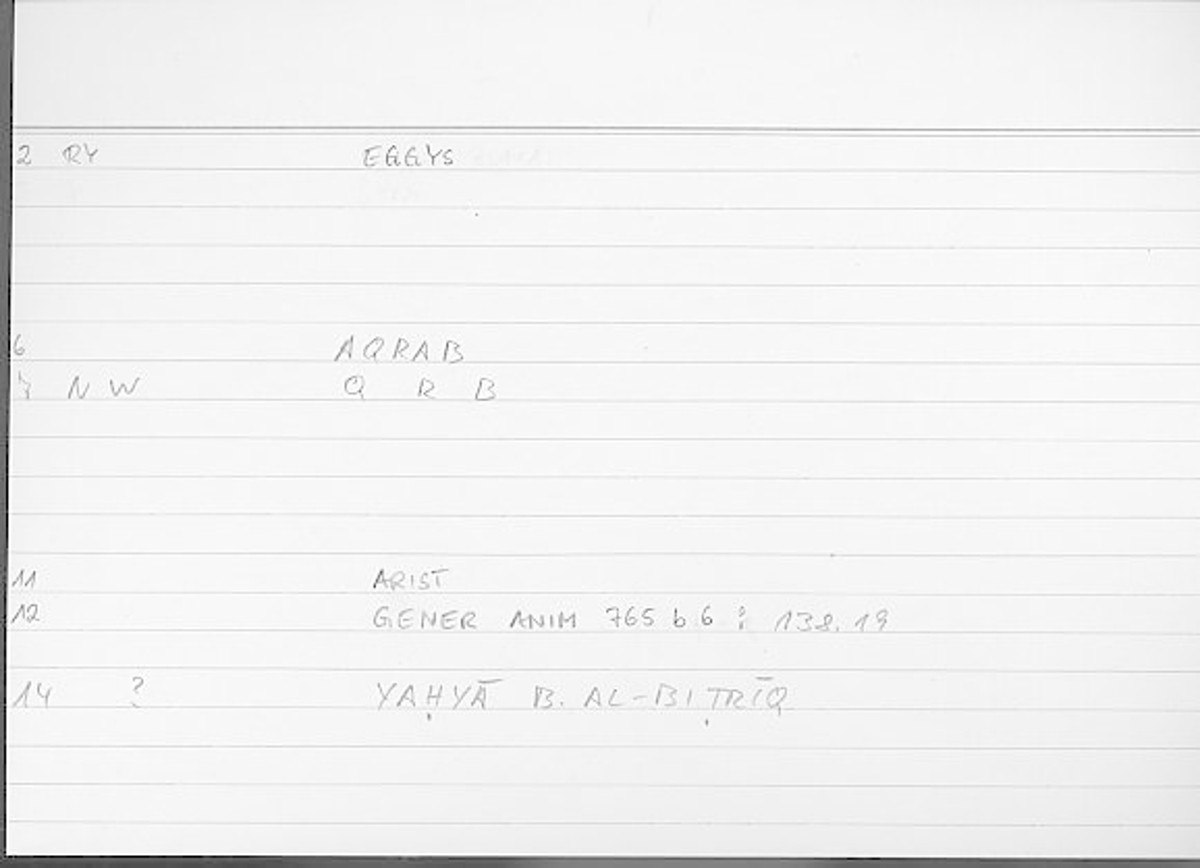 2 RY EGGYS
6 AQRAB
7 N W Q R B
11 ARIST
12 GENER ANIM 765 b 6 ; 138.19
14 ? YAḤYĀ B. AL-BIṬRĪQ